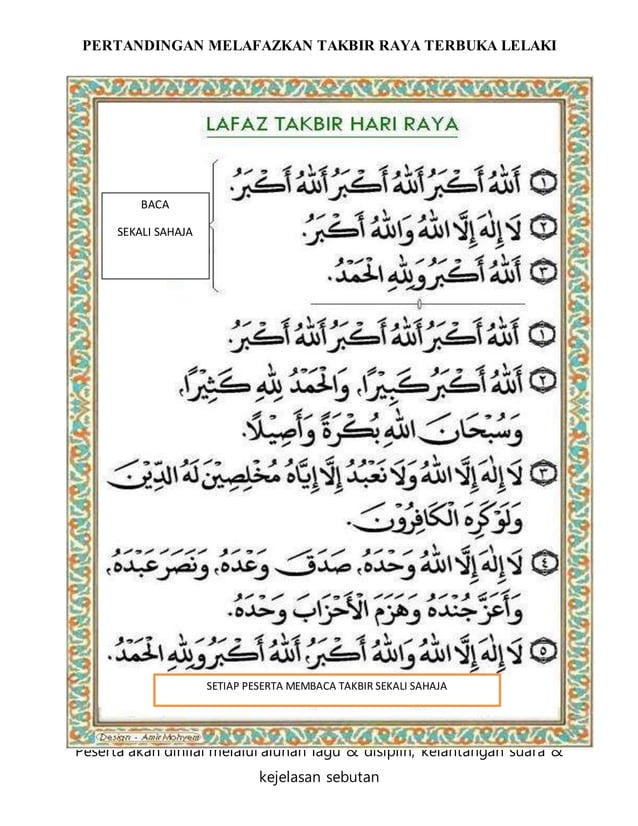 PERTANDINGAN MELAFAZKAN TAKBIR RAYA TERBUKA LELAKI
LAFAZ TAKBIR HARI RAYA
BACA
SEKALI SAHAJA
١ اَللهُ أَكْبَرُ اَللهُ أَكْبَرُ اَللهُ أَكْبَرُ.
٢ لَا إِلٰهَ إِلَّا اللهُ وَاللهُ أَكْبَرُ.
٣ اَللهُ أَكْبَرُ وَلِلّٰهِ الْحَمْدُ.
١ اَللهُ أَكْبَرُ اَللهُ أَكْبَرُ اَللهُ أَكْبَرُ.
٢ اَللهُ أَكْبَرُ كَبِيْرًا، وَالْحَمْدُ لِلّٰهِ كَثِيْرًا،
وَسُبْحَانَ اللهِ بُكْرَةً وَأَصِيْلًا.
٣ لَا إِلٰهَ إِلَّا اللهُ وَلَا نَعْبُدُ إِلَّا إِيَّاهُ مُخْلِصِيْنَ لَهُ الدِّيْنَ
وَلَوْكَرِهَ الْكَافِرُوْنَ.
٤ لَا إِلٰهَ إِلَّا اللهُ وَحْدَهُ، صَدَقَ وَعْدَهُ، وَنَصَرَ عَبْدَهُ،
وَأَعَزَّ جُنْدَهُ وَهَزَمَ الْأَحْزَابَ وَحْدَهُ.
٥ لَا إِلٰهَ إِلَّا اللهُ وَاللهُ أَكْبَرُ، اَللهُ أَكْبَرُ وَلِلّٰهِ الْحَمْدُ.
SETIAP PESERTA MEMBACA TAKBIR SEKALI SAHAJA
Design - Amir Mohyem
Peserta akan dinilai melalui alunan lagu & disiplin, kelantangan suara &
kejelasan sebutan